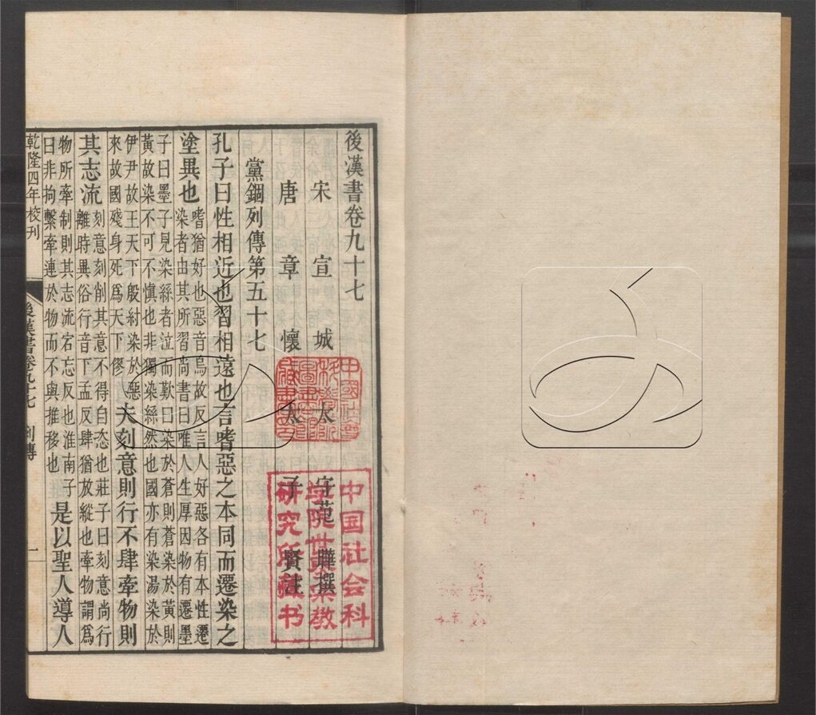 後漢書卷九十七
宋宣城太守范曄撰
唐章懷太子賢注
黨錮列傳第五十七
孔子曰性相近也習相遠也言嗜惡之本同而遷染之
塗異也
嗜猶好也惡音烏故反言人好惡各有本性遷
染者由其所習尚書曰唯人生厚因物有遷墨
子曰墨子見染絲者泣而歎曰染於蒼則蒼染於黃則
黃故染不可不慎也非獨染絲然也國亦有染湯染於
伊尹故王天下殷紂染於惡
來故國殘身死爲天下僇
夫刻意則行不肆牽物則
其志流
刻意刻削其意不得自恣也莊子曰刻意尚行
離時異俗行音下孟反肆猶放縱也牽物謂爲
物所牽制則其志流宕忘反也淮南子
曰非拘繫牽連於物而不與推移也
是以聖人導人
乾隆四年校刊
後漢書卷九十七 列傳
中国社会科
学院世界宗教
研究所藏书